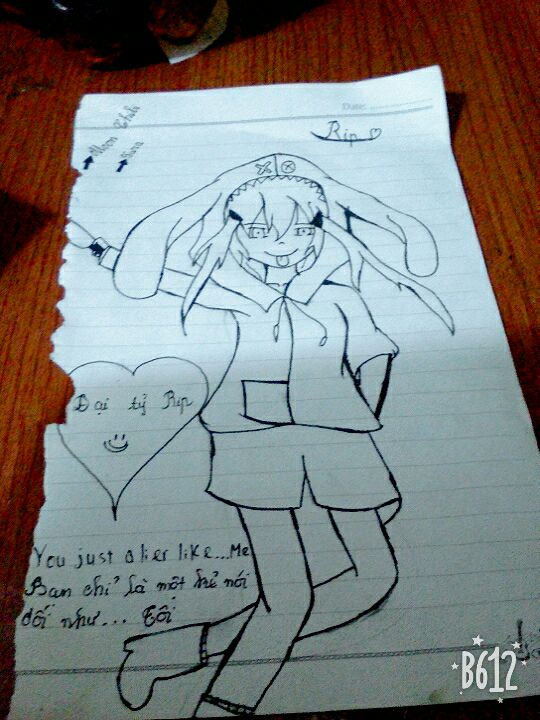 Date:
Rip
Đại tỷ Rip
You just a lier like...Me
Bạn chỉ là một kẻ nói
dối như... Tôi
B612